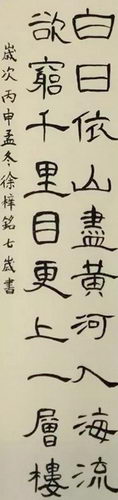 白日依山盡黃河入海流
欲窮千里目更上一層樓
歲次丙申孟冬徐梓銘七歲書